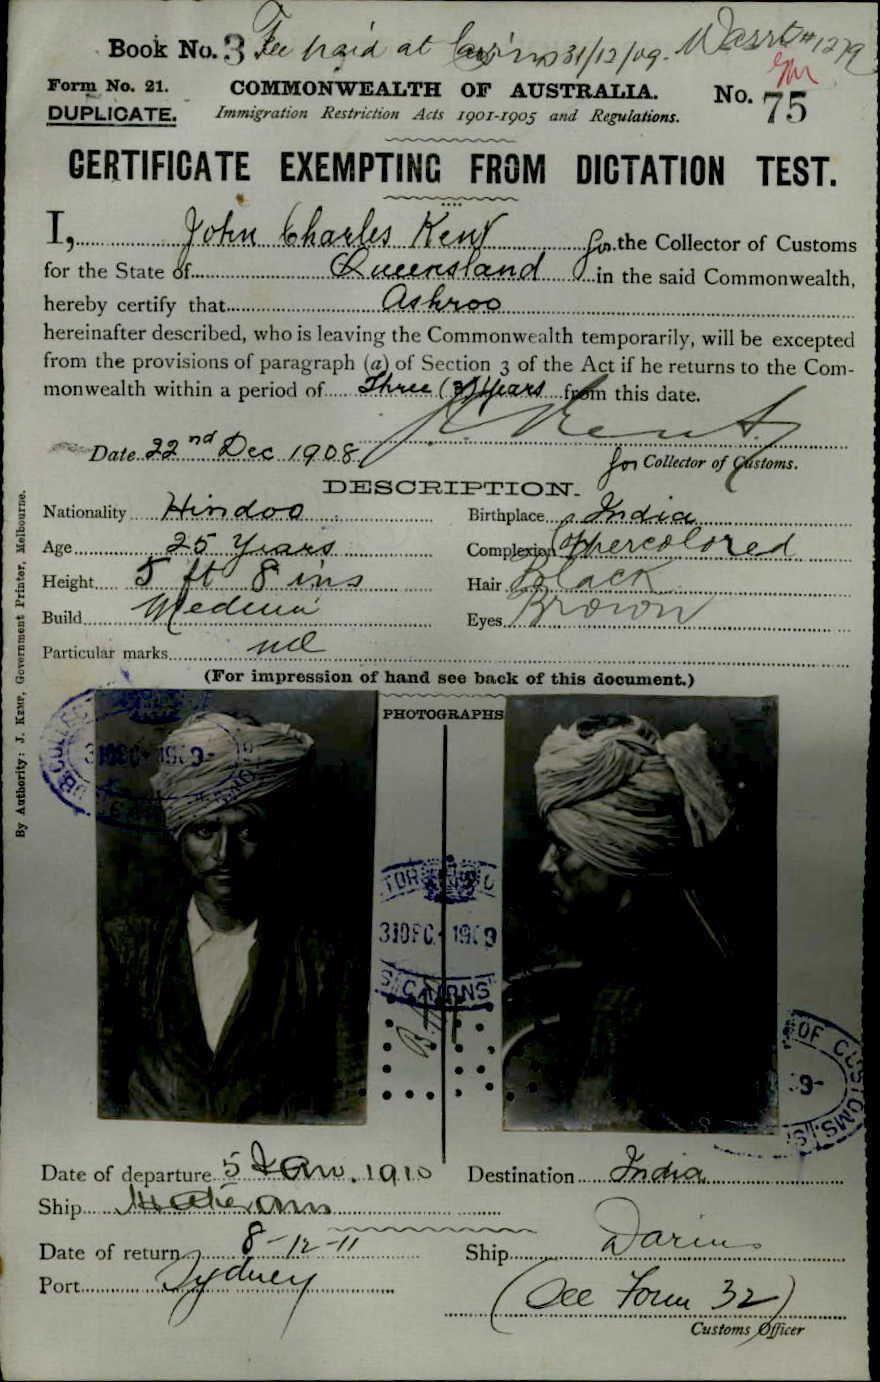 Book No. 3 Fee paid at Cairns 31/12/09. Warrt # 1279
Form No. 21. COMMONWEALTH OF AUSTRALIA. No. 75
DUPLICATE. Immigration Restriction Acts 1901-1905 and Regulations.
CERTIFICATE EXEMPTING FROM DICTATION TEST.
I, John Charles Kent for the Collector of Customs
for the State of Queensland in the said Commonwealth,
hereby certify that Ashroo
hereinafter described, who is leaving the Commonwealth temporarily, will be excepted
from the provisions of paragraph (a) of Section 3 of the Act if he returns to the Com-
monwealth within a period of Three (3) Years from this date.
J. C. Kent
Date 22nd Dec 1908
for Collector of Customs.
DESCRIPTION.
Nationality Hindoo Birthplace India
Age 25 Years Complexion Coppercolored
Height 5 ft 8 ins Hair Black
Build Medium Eyes Brown
Particular marks nil
(For impression of hand see back of this document.)
PHOTOGRAPHS
31 DEC 1909
CAIRNS
OF CUSTOMS
Date of departure 5 Jan. 1910 Destination India
Ship Mataram
Date of return 8-12-11 Ship
Port Sydney (See Form 32)
Customs Officer
By Authority: J. KEMP, Government Printer, Melbourne.